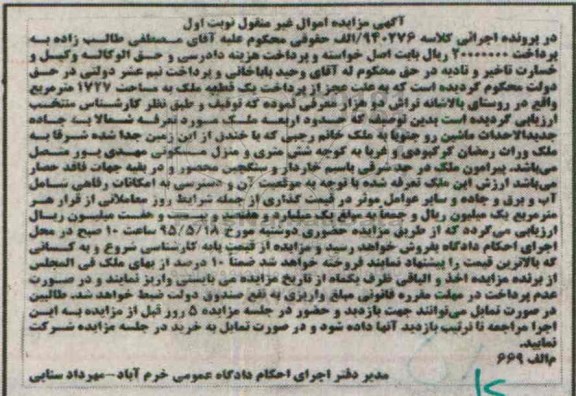 آگهی مزایده اموال غیر منقول نوبت اول
در پرونده اجرائی کلاسه ۹۴۰۲۷۶/الف حقوقی محکوم علیه آقای مصطفی طالب زاده به
پرداخت ۲۰۰۰۰۰۰۰ ریال بابت اصل خواسته و پرداخت هزینه دادرسی و حق الوکاله وکیل و
خسارت تاخیر و تادیه در حق محکوم له آقای وحید باباخانی و پرداخت نیم عشر دولتی در حق
دولت محکوم گردیده است که به علت عجز از پرداخت یک قطعه ملک به مساحت ۱۷۲۷ مترمربع
واقع در روستای بالاشانه تراش دو هزار معرفی نموده که توقیف و طبق نظر کارشناس منتخب
ارزیابی گردیده است بدین توصیف که حدود اربعه ملک مورد تعرفه شمالا به جاده
جدیدالاحداث ماشین رو جنوبا به ملک خانم رجبی که با خندق از این زمین جدا شده شرقا به
ملک وراث رمضان گرکبودی و غربا به کوچه شش متری و منزل مسکونی مهدی پور متصل
میباشد. پیرامون ملک در حد شرقی باسیم خاردار و سنگچین محصور و در بقیه جهات فاقد حصار
می باشد ارزش این ملک تعرفه شده با توجه به موقعیت آن و دسترسی به امکانات رفاهی شامل
آب و برق و جاده و سایر عوامل موثر در قیمت گذاری از جمله شرایط روز معاملاتی از قرار هر
مترمربع یک میلیون ریال و جمعا به مبلغ یک میلیارد و هفتصد و بیست و هفت میلیون ریال
ارزیابی میگردد که از طریق مزایده حضوری دوشنبه مورخ ۹۵/۵/۱۸ ساعت ۱۰ صبح در محل
اجرای احکام دادگاه بفروش خواهد رسید و مزایده از قیمت پایه کارشناسی شروع و به کسانی
که بالاترین قیمت را پیشنهاد نمایند فروخته خواهد شد ضمنا ۱۰ درصد از بهای ملک فی المجلس
از برنده مزایده اخذ و الباقی ظرف یکماه از تاریخ مزایده می بایستی واریز نمایند و در صورت
عدم پرداخت در مهلت مقرره قانونی مبلغ واریزی به نفع صندوق دولت ضبط خواهد شد. طالبین
در صورت تمایل می‌توانند جهت بازدید و حضور در جلسه مزایده ۵ روز قبل از مزایده به این
اجرا مراجعه تا ترتیب بازدید آنها داده شود و در صورت تمایل به خرید در جلسه مزایده شرکت
نمایید.
م/الف ۶۶۹
مدیر دفتر اجرای احکام دادگاه عمومی خرم آباد-مهرداد سنایی